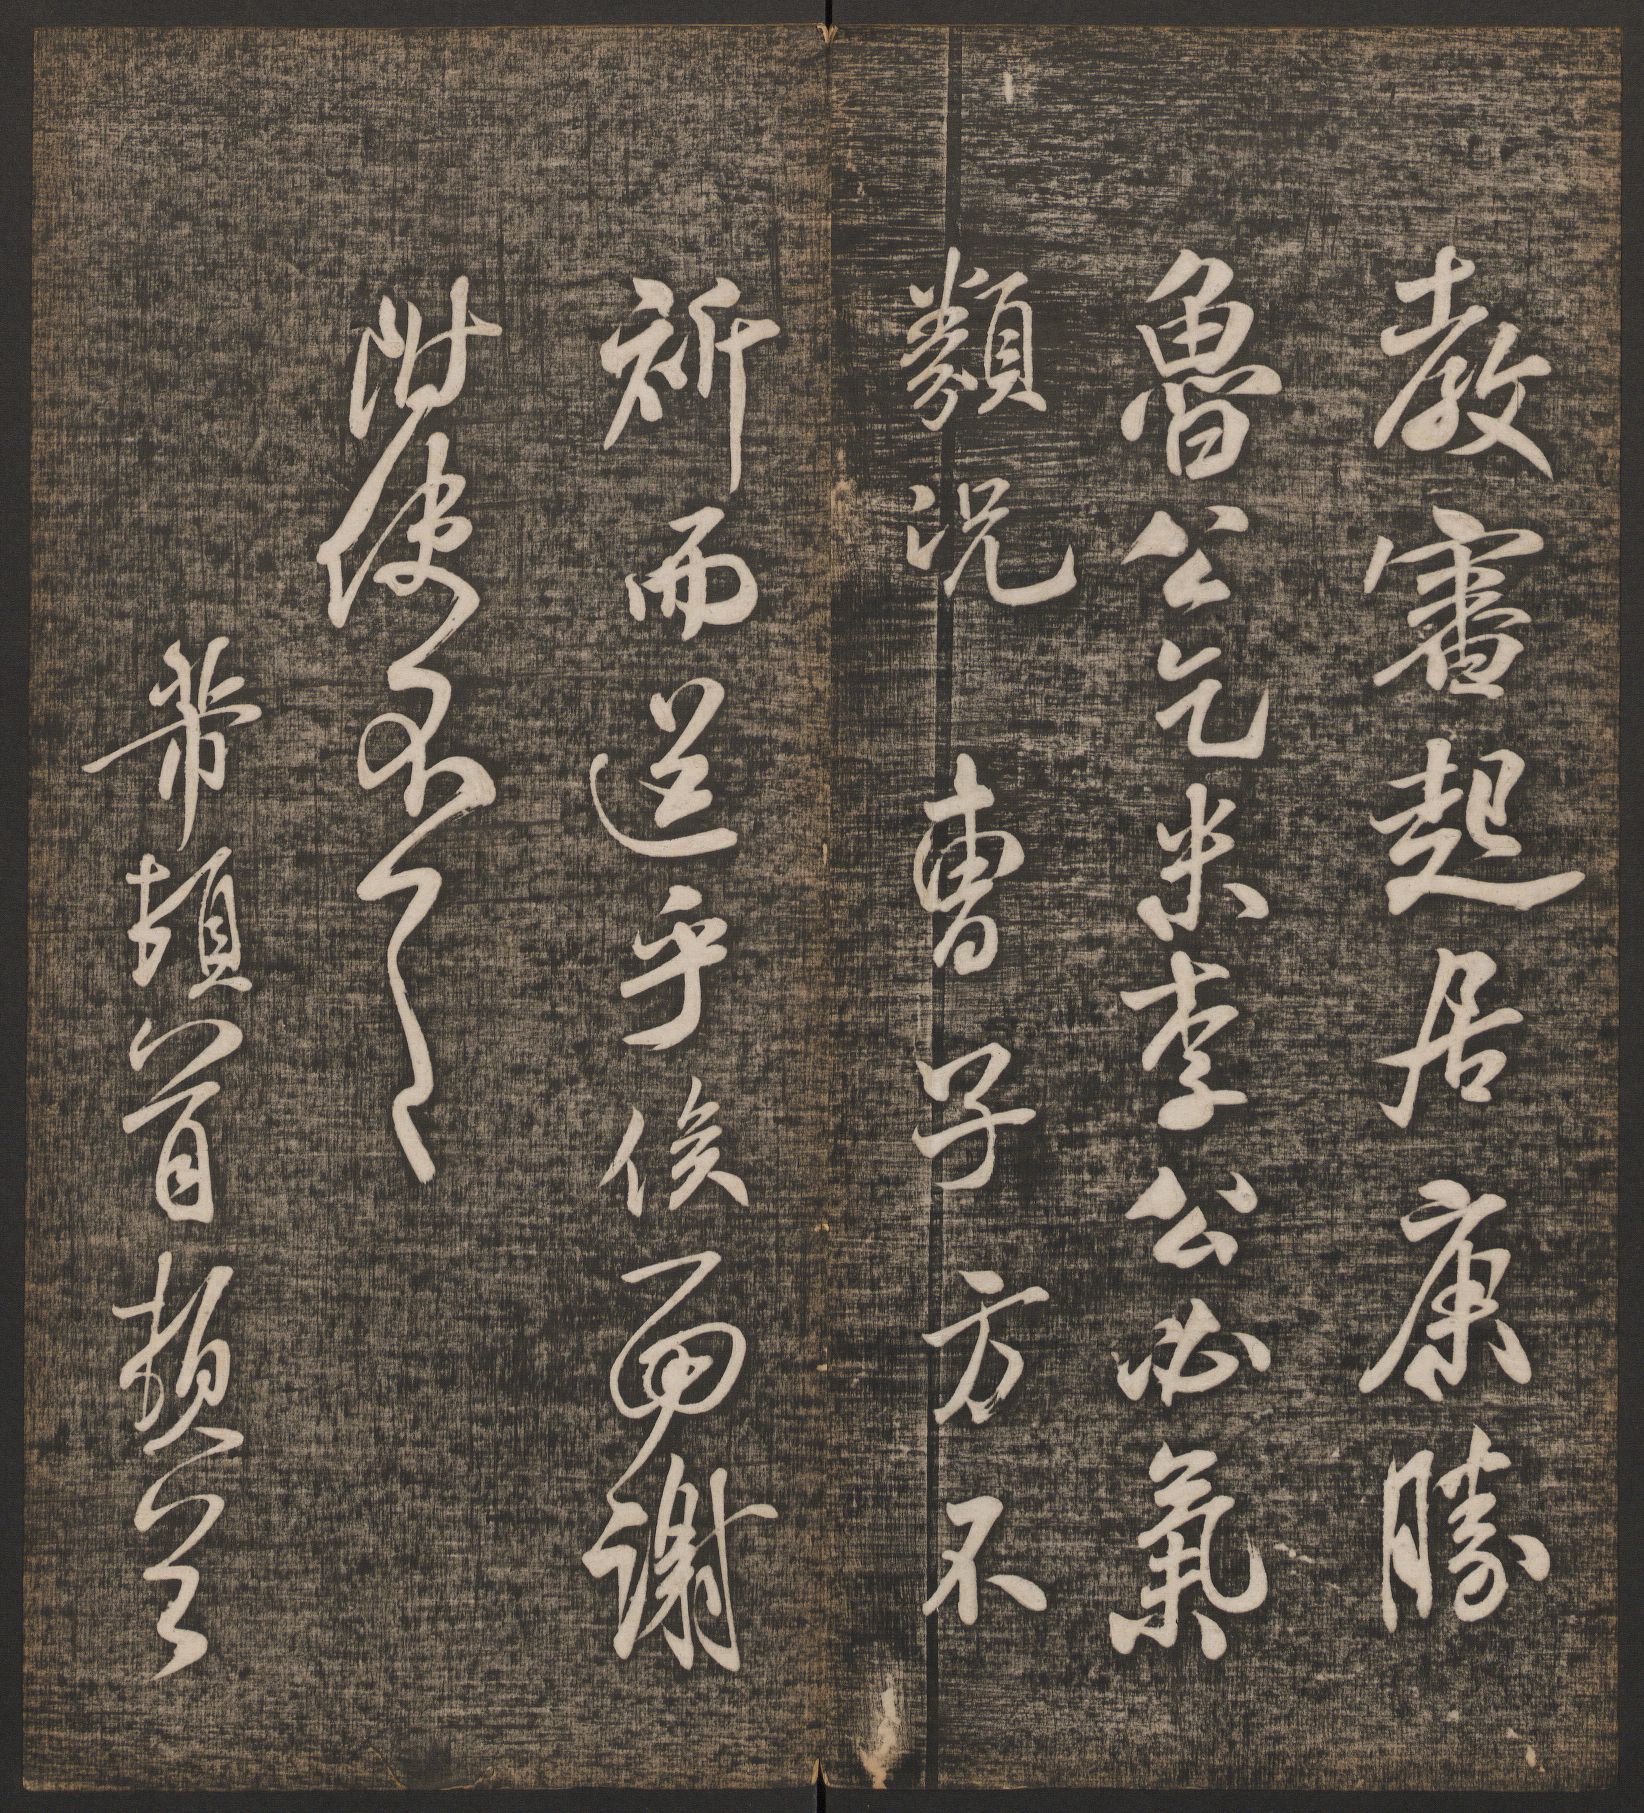 教審起居康勝
魯公乞米李公必氣
類況 曹子方不
祈而送乎俟面謝
附使不
芾頓首頓首